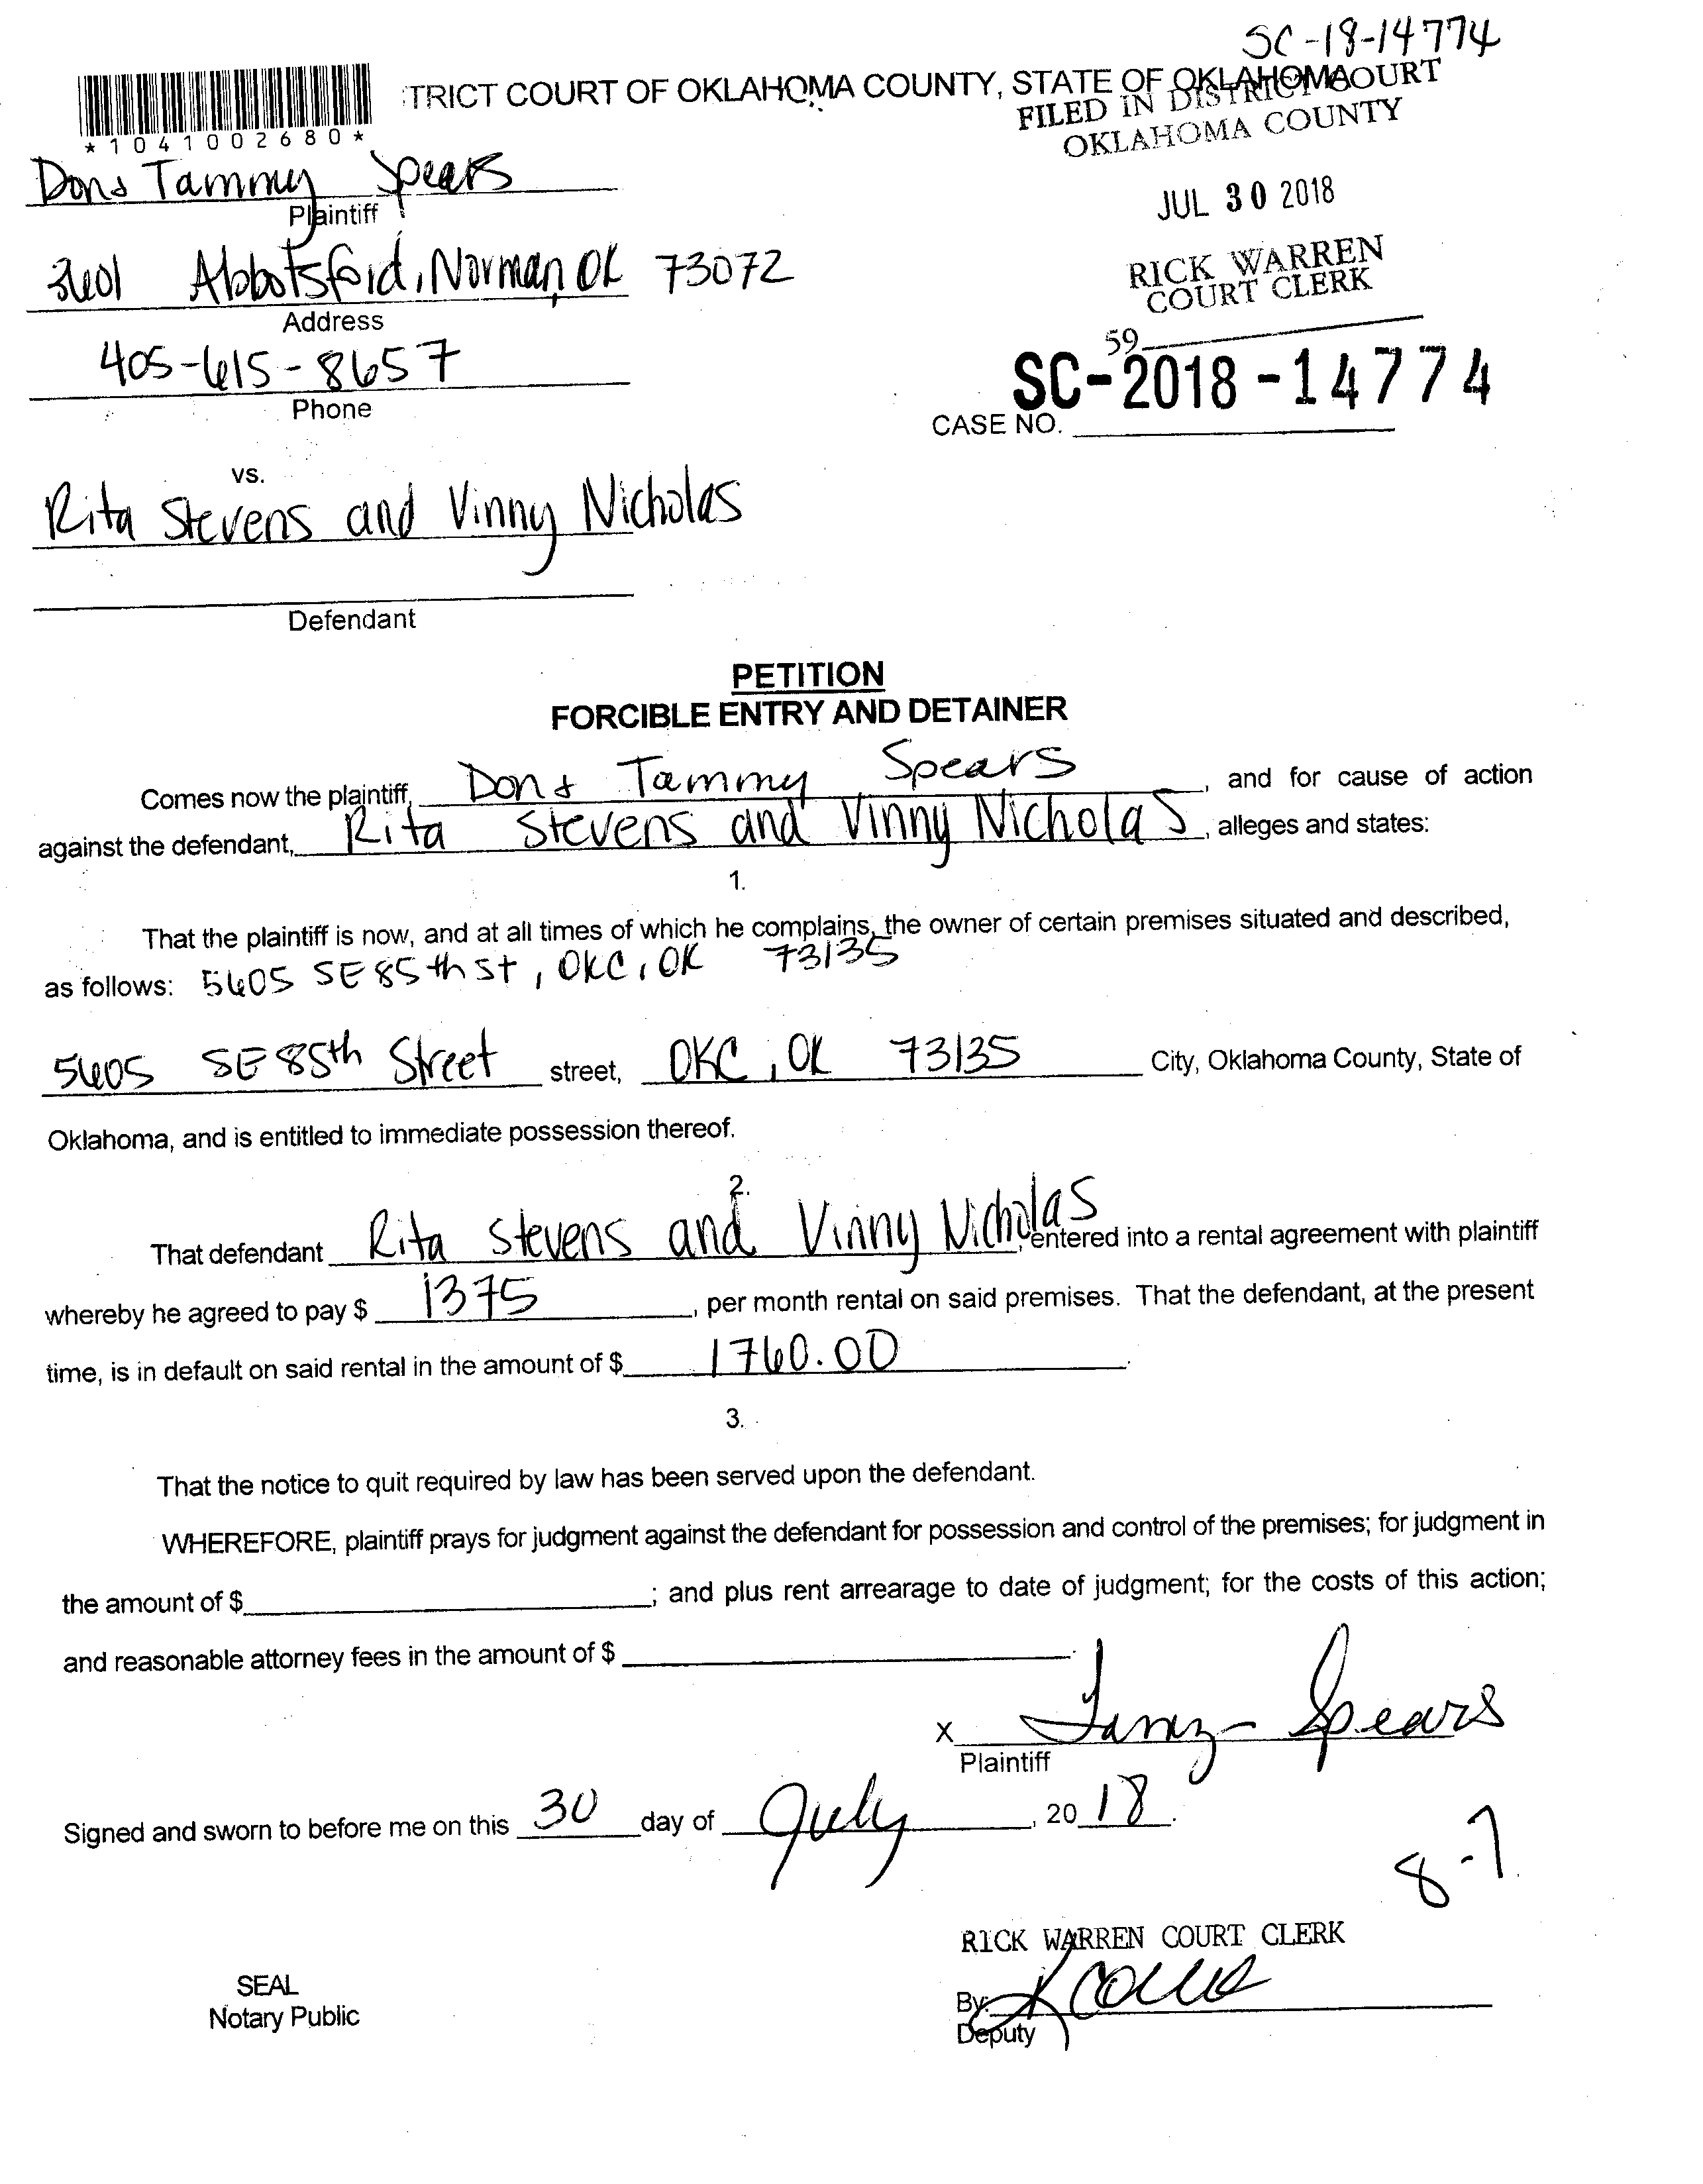 SC-18-14774
TRICT COURT OF OKLAHOMA COUNTY, STATE OF OKLAHOMA
FILED IN DISTRICT COURT
OKLAHOMA COUNTY
*1041002680*
Don & Tammy Spears
Plaintiff
JUL 30 2018
3601 Abbotsford, Norman, OK 73072
Address
RICK WARREN
COURT CLERK
405-615-8657
Phone
59
SC-2018-14774
CASE NO.
vs.
Rita Stevens and Vinny Nicholas
Defendant
PETITION
FORCIBLE ENTRY AND DETAINER
Comes now the plaintiff, Don & Tammy Spears, and for cause of action
against the defendant, Rita Stevens and Vinny Nicholas, alleges and states:
1.
That the plaintiff is now, and at all times of which he complains, the owner of certain premises situated and described,
as follows: 5605 SE 85th St, OKC, OK 73135
5605 SE 85th Street street, OKC, OK 73135 City, Oklahoma County, State of
Oklahoma, and is entitled to immediate possession thereof.
2.
That defendant Rita Stevens and Vinny Nicholas, entered into a rental agreement with plaintiff
whereby he agreed to pay $ 1375, per month rental on said premises. That the defendant, at the present
time, is in default on said rental in the amount of $ 1760.00.
3.
That the notice to quit required by law has been served upon the defendant.
WHEREFORE, plaintiff prays for judgment against the defendant for possession and control of the premises; for judgment in
the amount of $ ; and plus rent arrearage to date of judgment; for the costs of this action;
and reasonable attorney fees in the amount of $ .
X Tammy Spears
Plaintiff
Signed and sworn to before me on this 30 day of July, 2018.
8-7
RICK WARREN COURT CLERK
SEAL
Notary Public
By:
Deputy